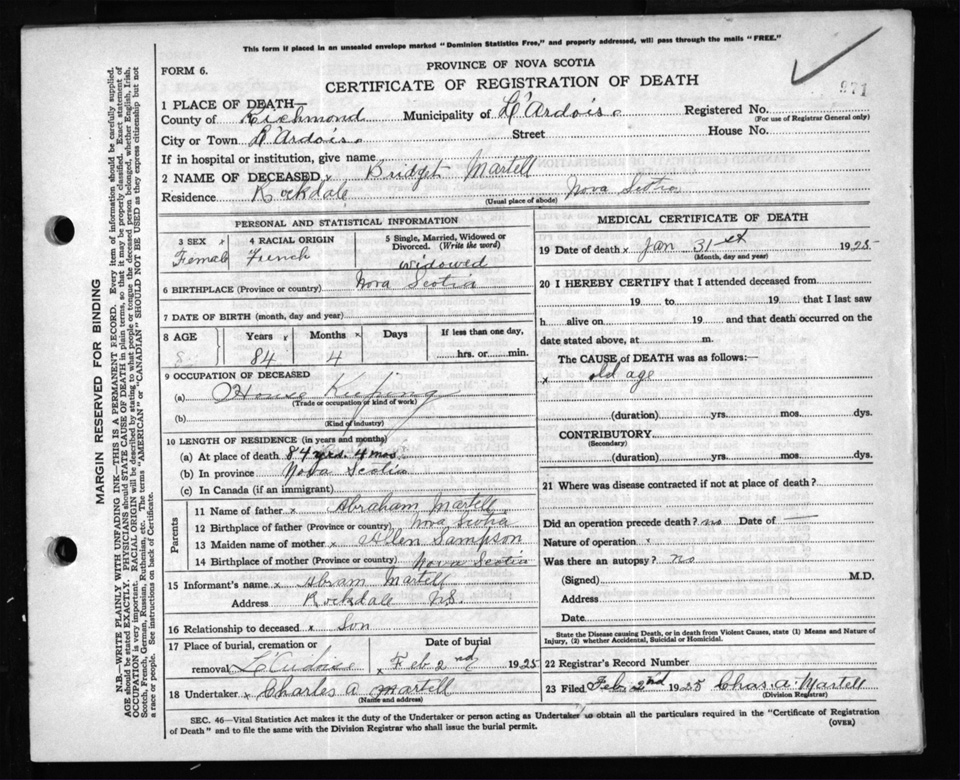 This form if placed in an unsealed envelope marked "Dominion Statistics Free," and properly addressed, will pass through the mails "FREE."
FORM 6.
PROVINCE OF NOVA SCOTIA
CERTIFICATE OF REGISTRATION OF DEATH
971
1 PLACE OF DEATH—
County of Richmond Municipality of L'Ardoise Registered No.
(For use of Registrar General only)
City or Town L'Ardoise Street House No.
If in hospital or institution, give name
2 NAME OF DECEASED x Bridget Martell
Residence Rockdale Nova Scotia
(Usual place of abode)
PERSONAL AND STATISTICAL INFORMATION
3 SEX x 4 RACIAL ORIGIN 5 Single, Married, Widowed or Divorced. (Write the word)
Female French widowed
6 BIRTHPLACE (Province or country) Nova Scotia
7 DATE OF BIRTH (month, day and year)
8 AGE Years x Months x Days If less than one day,
84 4 hrs. or min.
9 OCCUPATION OF DECEASED
(a) House Keeping
(Trade or occupation or kind of work)
(b)
(Kind of industry)
10 LENGTH OF RESIDENCE (in years and months)
(a) At place of death 84 yrs. 4 mos.
(b) In province Nova Scotia
(c) In Canada (if an immigrant)
Parents
11 Name of father x Abraham Martell
12 Birthplace of father (Province or country) Nova Scotia
13 Maiden name of mother x Helen Sampson
14 Birthplace of mother (Province or country) Nova Scotia
15 Informant's name x Abram Martell
Address Rockdale N.S.
16 Relationship to deceased x Son
17 Place of burial, cremation or Date of burial
removal L'Ardoise x Feb 2nd 1925
18 Undertaker x Charles A Martell
(Name and address)
MEDICAL CERTIFICATE OF DEATH
19 Date of death x Jan 31st 1925
(Month, day and year)
20 I HEREBY CERTIFY that I attended deceased from
19 to 19 that I last saw
h alive on 19 and that death occurred on the
date stated above, at m.
The CAUSE of DEATH was as follows:—
x old age
(duration) yrs. mos. dys.
CONTRIBUTORY
(Secondary)
(duration) yrs. mos. dys.
21 Where was disease contracted if not at place of death?
Did an operation precede death? no Date of —
Nature of operation
Was there an autopsy? no
(Signed) M.D.
Address
Date
State the Disease causing Death, or in death from Violent Causes, state (1) Means and Nature of
Injury, (2) whether Accidental, Suicidal or Homicidal.
22 Registrar's Record Number
23 Filed Feb 2nd 1925 Chas. A. Martell
(Division Registrar)
SEC. 46—Vital Statistics Act makes it the duty of the Undertaker or person acting as Undertaker to obtain all the particulars required in the "Certificate of Registration
of Death" and to file the same with the Division Registrar who shall issue the burial permit.
(OVER)
MARGIN RESERVED FOR BINDING
N.B.—WRITE PLAINLY WITH UNFADING INK—THIS IS A PERMANENT RECORD. Every item of information should be carefully supplied.
AGE should be stated EXACTLY. PHYSICIANS should STATE CAUSE OF DEATH in plain terms, so that it may be properly classified. Exact statement of
OCCUPATION is very important. RACIAL ORIGIN will be described by stating to what people or tongue the deceased person belonged, whether English, Irish,
Scotch, French, German, Russian, Ruthenian, etc. The terms "AMERICAN" or "CANADIAN" SHOULD NOT BE USED as they express citizenship but not
a race or people. See instructions on back of Certificate.